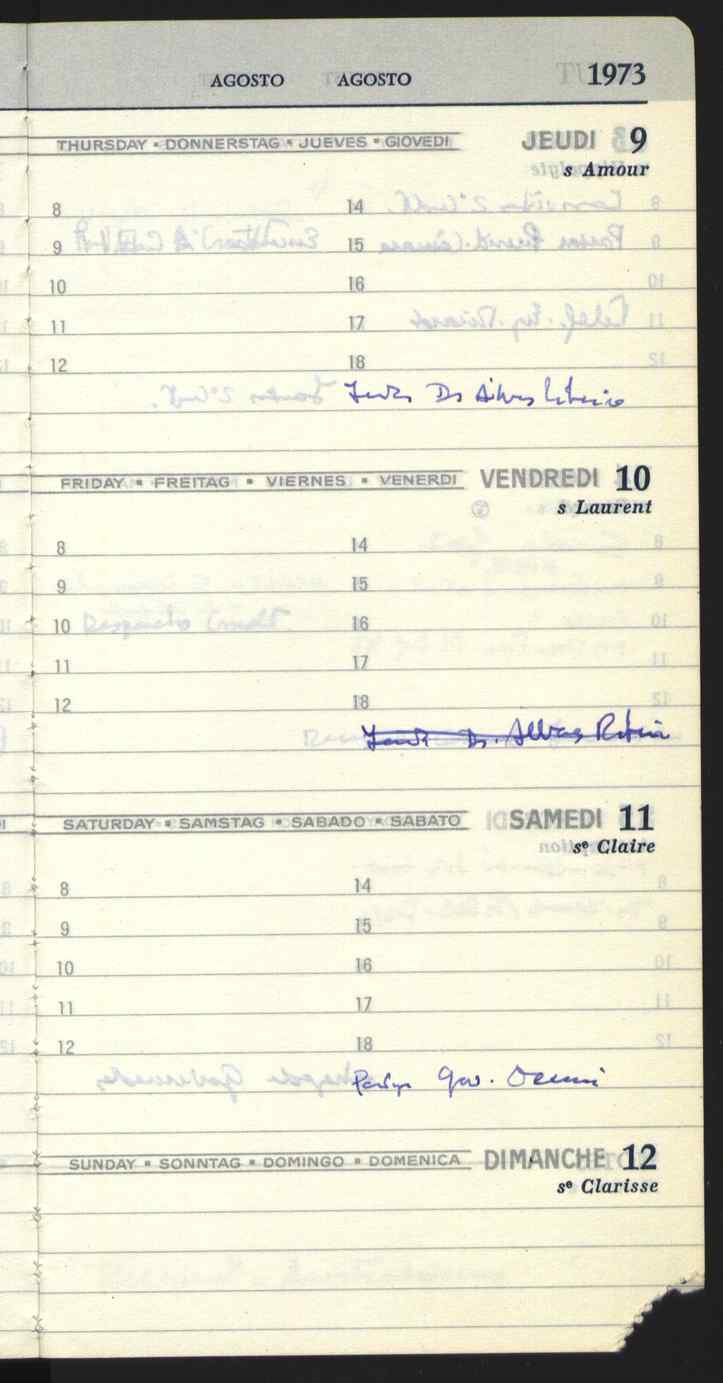 AGOSTO AGOSTO 1973
THURSDAY • DONNERSTAG • JUEVES • GIOVEDI JEUDI 9
s Amour
8 14
9 15
10 16
11 17
12 18
Dr Alves
FRIDAY • FREITAG • VIERNES • VENERDI VENDREDI 10
s Laurent
8 14
9 15
10 16
11 17
12 18
Dr. Alves
SATURDAY • SAMSTAG • SABADO • SABATO SAMEDI 11
sᵉ Claire
8 14
9 15
10 16
11 17
12 18
Gov.
SUNDAY • SONNTAG • DOMINGO • DOMENICA DIMANCHE 12
sᵉ Clarisse